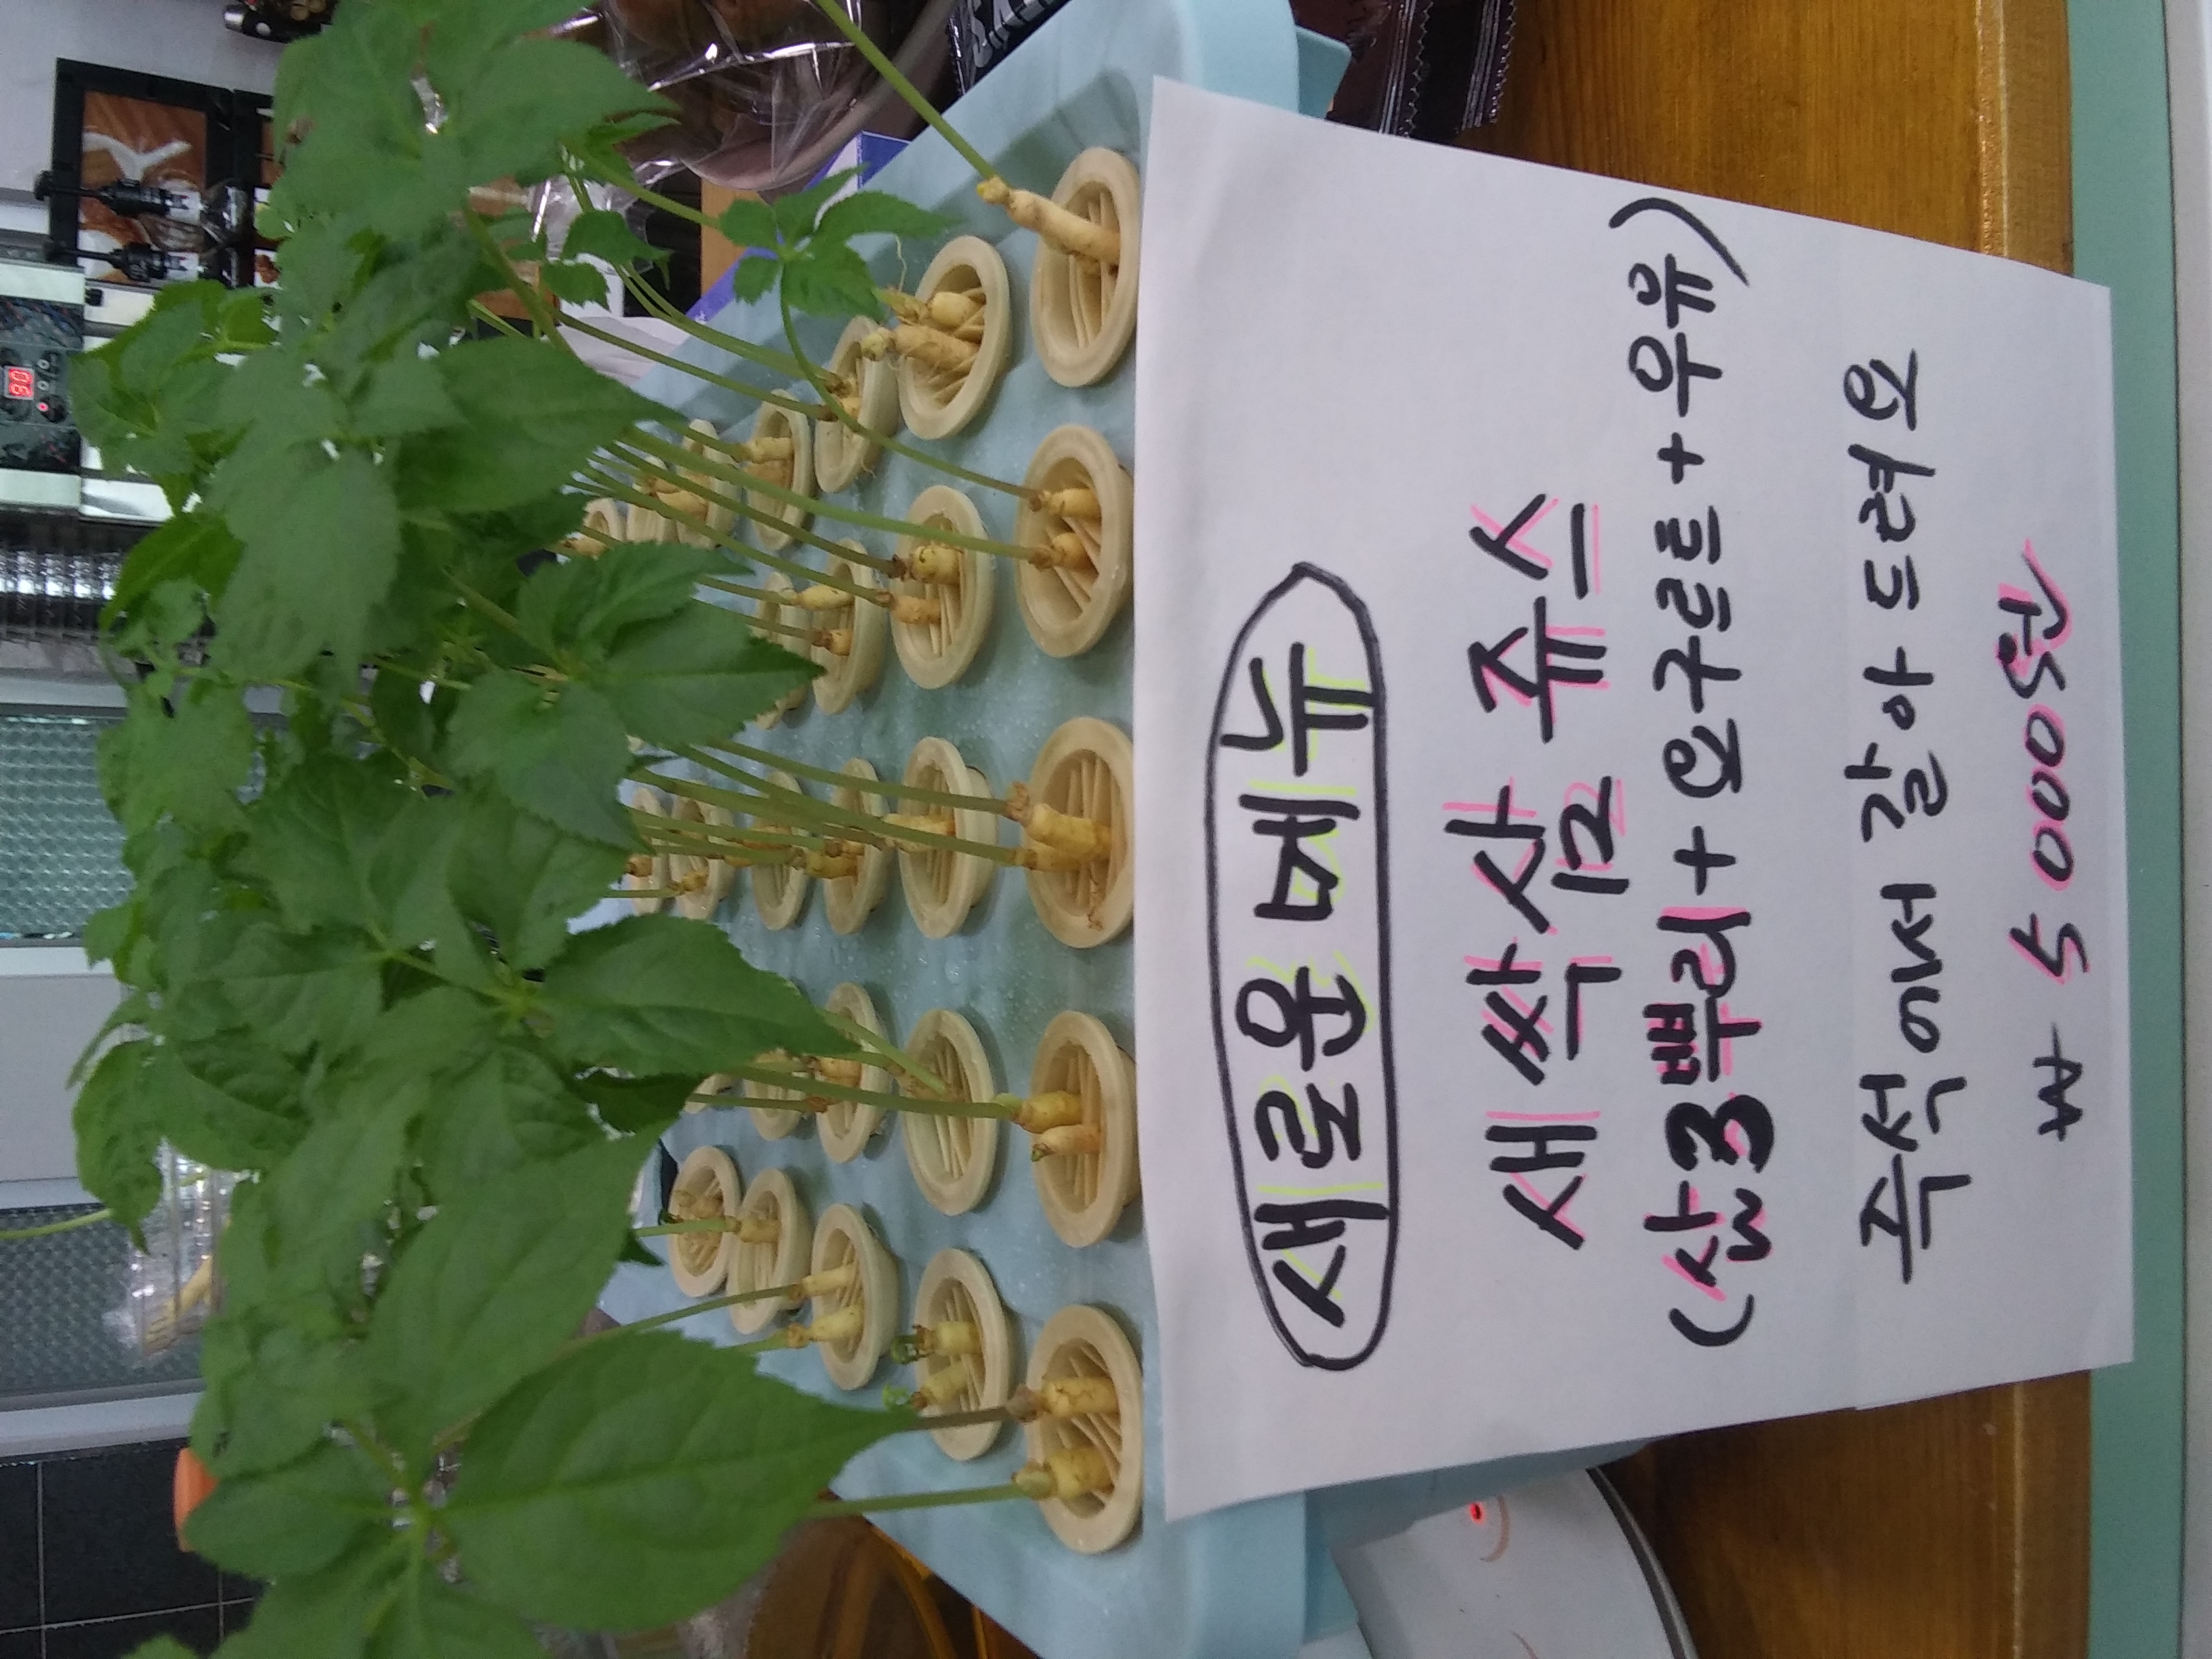 90
새로운 메뉴
새싹삼 쥬스
(삼3뿌리+요구르트+우유)
즉석에서 갈아 드려요
₩ 5000원